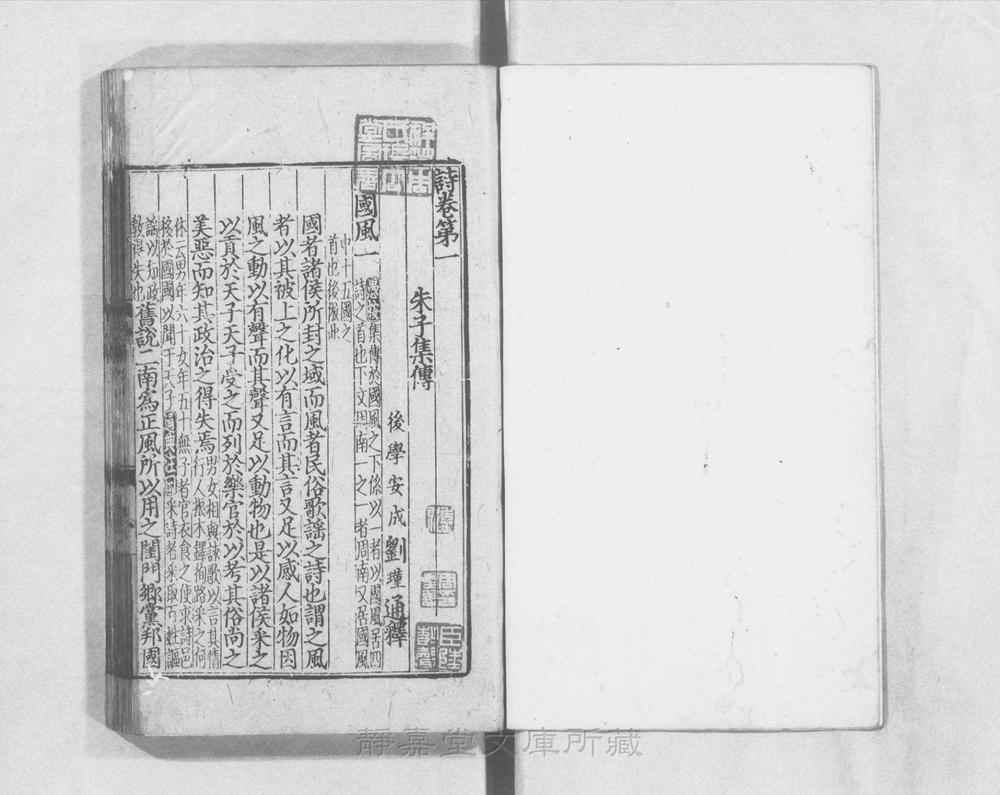 詩卷第一
朱子集傳
後學安成劉瑾通釋
國風一
愚按集傳於國風之下係以一者以國風居四
詩之首也下文周南一之一者周南又居國風
中十五國之
首也後倣此
國者諸侯所封之域而風者民俗歌謡之詩也謂之風
者以其被上之化以有言而其言又足以感人如物因
風之動以有聲而其聲又足以動物也是以諸侯采之
以貢於天子天子受之而列於樂官於以考其俗尚之
美惡而知其政治之得失焉
男女相與詠歌以言其情
行人振木鐸徇路采之何
休云男年六十女年五十無子者官衣食之使求詩邑
移於國國以聞于天子
采詩者采取百姓謳
謡以知政
教得失也
舊說二南為正風所以用之閨門鄉黨邦國
靜嘉堂文庫所藏